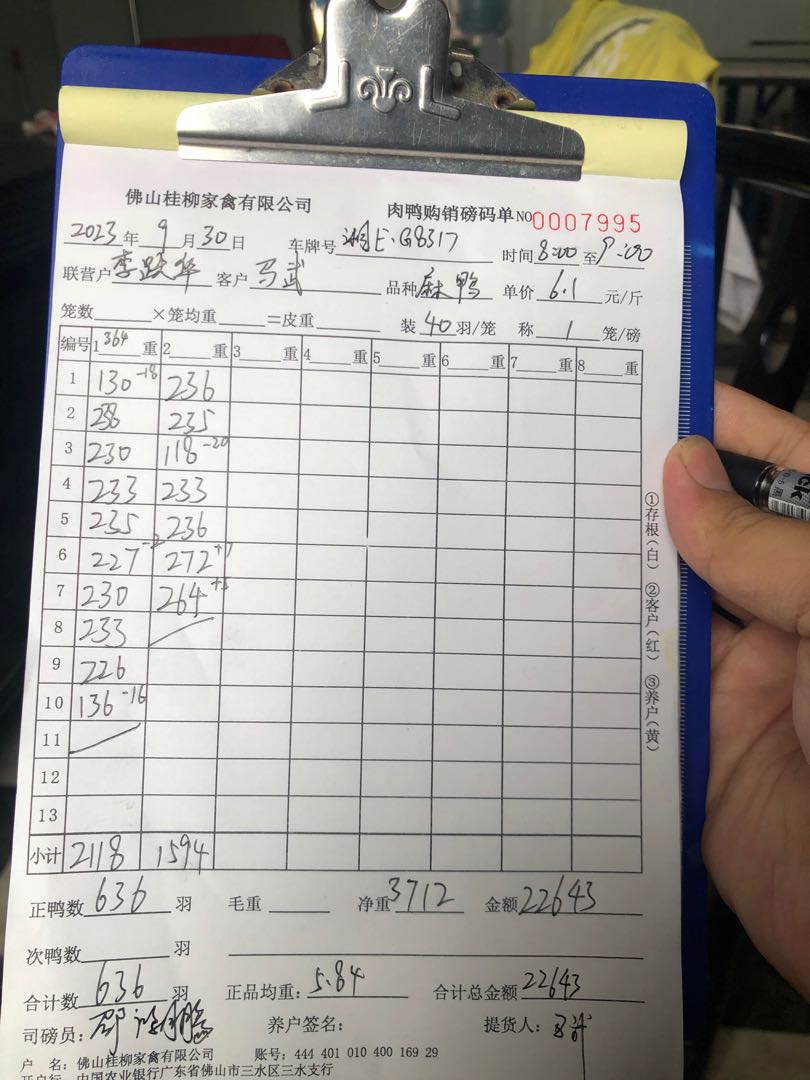 佛山桂柳家禽有限公司 肉鸭购销磅码单NO 0007995
2023年9月30日 车牌号 湘E·G8317 时间8:00至9:00
联营户 客户 马武 品种 麻鸭 单价 6.1 元/斤
笼数 ×笼均重 =皮重 装 40 羽/笼 称 1 笼/磅
编号 1 364 重 2 重 3 重 4 重 5 重 6 重 7 重 8 重
1 130 -18 236
2 238 235
3 230 118 -20
4 233 233
5 235 236
6 227 -2 272 +7
7 230 264 +5
8 233
9 226
10 136 -16
11
12
13
小计 2118 1594
正鸭数 636 羽 毛重 净重 3712 金额 22643
次鸭数 羽
合计数 636 羽 正品均重: 5.84 合计总金额 22643
司磅员: 养户签名: 提货人:
户 名: 佛山桂柳家禽有限公司 账号: 444 401 010 400 169 29
开户行: 中国农业银行广东省佛山市三水区三水支行
①存根(白) ②客户(红) ③养户(黄)